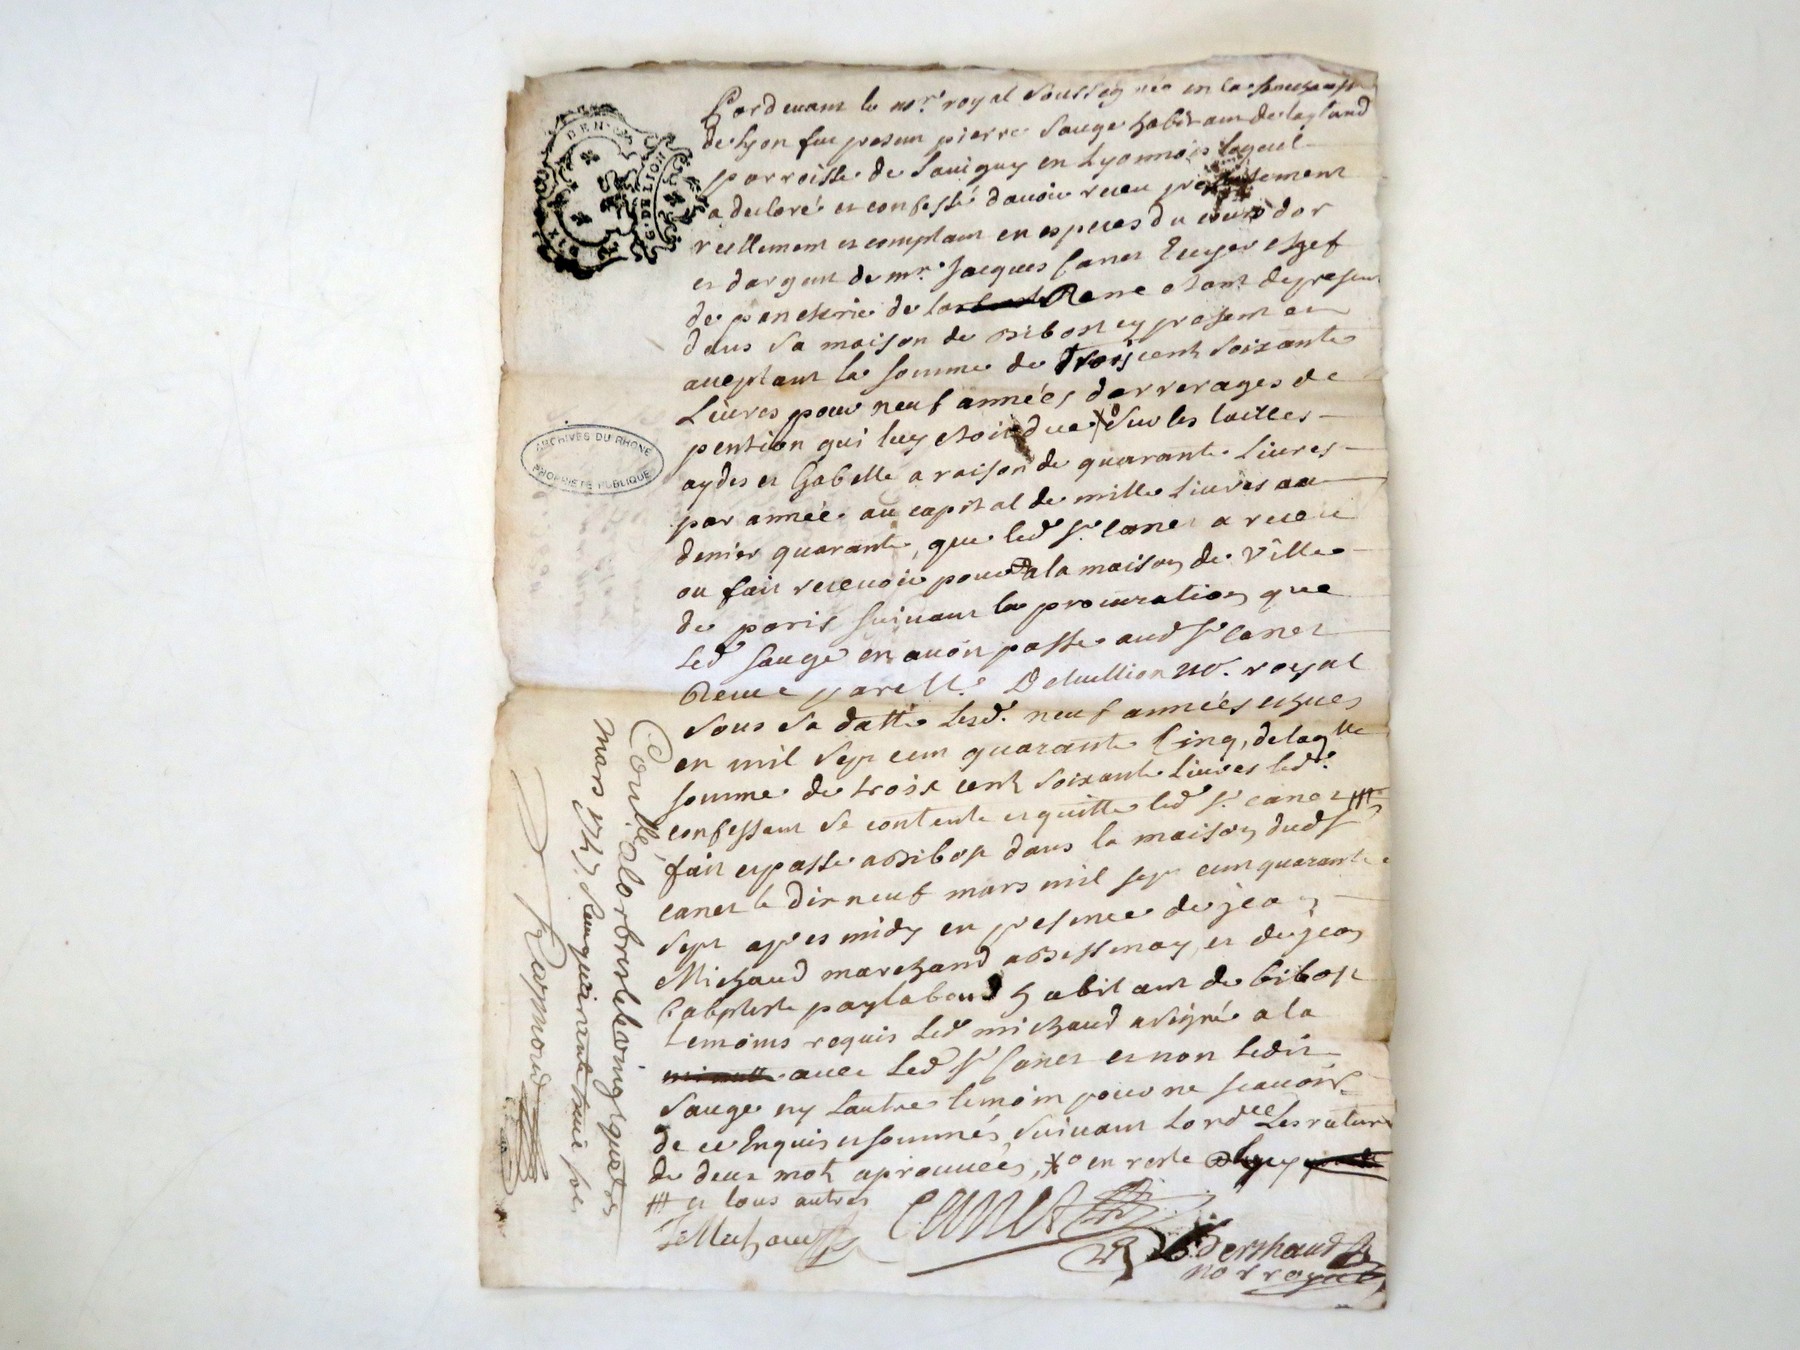 DIX DEN.
G. DE LION
ARCHIVES DU RHONE
PROPRIÉTÉ PUBLIQUE
Pardevant le no.re royal soussigné en la senechaussée
de Lyon fut present pierre Sauge habitant de
parroisse de Savigny en Lyonnois lequel
a declaré et confessé davoir receu presentement
reellement et comptant en especes du cours dor
et dargent de mr. Jacques Canet Ecuyer chef
de paneterie de la Rene etant de present
dans sa maison de Bibost cy present et
aceptant la somme de trois cent soixante
Livres pour neuf années darrerages de
pention qui luy etoit due xo sur les tailles
aydes et Gabelle a raison de quarante Livres
par année au capital de mille Livres au
denier quarante, que led. Sr. Canet a receu
ou fait recevoir pour a la maison de Ville
de paris suivant la procuration que
led. Sauge en avoit passé aud. Sr Canet
Receue par Me. no. royal
sous sa datte lesd. neuf années echues
en mil sept cent quarante Cinq, de laqlle
somme de trois cent soixante Livres led.
confessant se contente et quitte led Sr. Canet #
fait et passé a Bibost dans la maison dud Sr
Canet le dixneuf mars mil sept cent quarante
sept apres midy en presence de jean
Michaud marchand a Bessenay, et de jean
Baptiste habitant de bibost
temoins requis led. michaud a signé a la
minutte avec led. Sr Canet et non ledit
Sauge ny lautre temoin pour ne scavoir
de ce Enquis et sommés suivant lord.ce Les rature
de deux mots aprouvées, xo en reste
# et tous autres
J Michaud Canet
not royal
Con.llé a larbresle le vingt quatre
mars 1747. Reçu quarante huit sols
Raymond